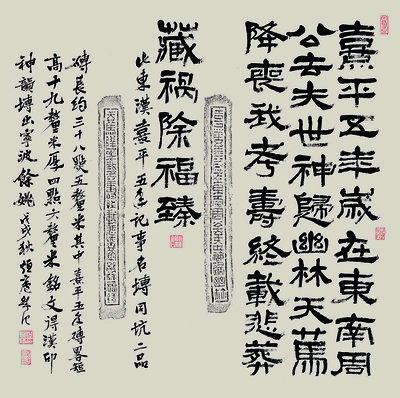 熹平五年歲在東南周
公去夫世神歸幽林天篤
降喪我考壽終載悲葬
藏祸除福臻
此東漢熹平五年記事名塼同坑二品
磚長約三十八點五釐米其中熹平五年磚畧短
高十九釐米厚四點六釐米銘文得漢印
神韻塼出寧波餘姚戊戌秋